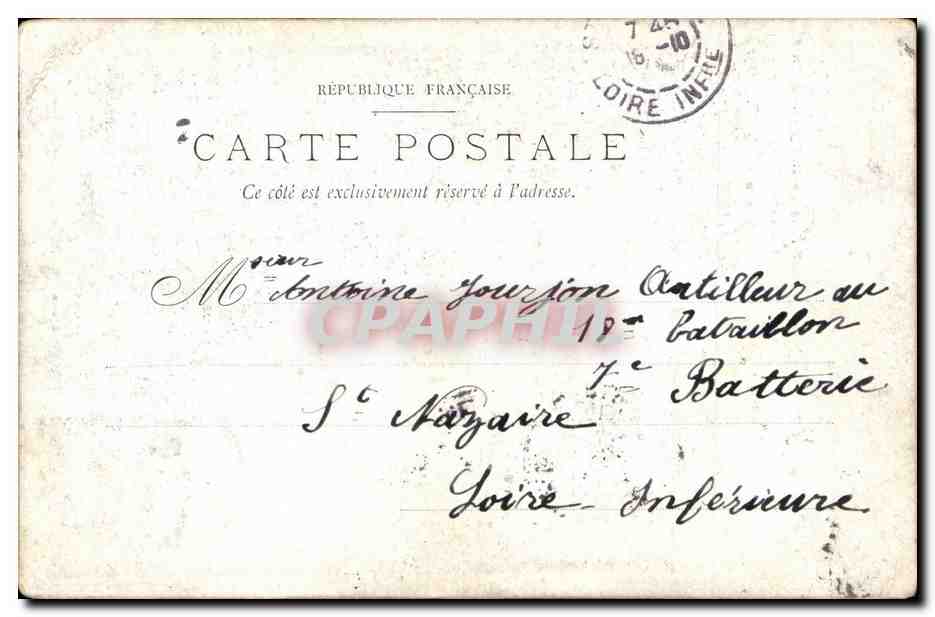 7 45
18 -10
LOIRE INFRE
RÉPUBLIQUE FRANÇAISE
CARTE POSTALE
Ce côté est exclusivement réservé à l'adresse.
Msieur Antoine Jourjon Artilleur au
18me bataillon
7e Batterie
St Nazaire
Loire-Inférieure
CPAPHIL